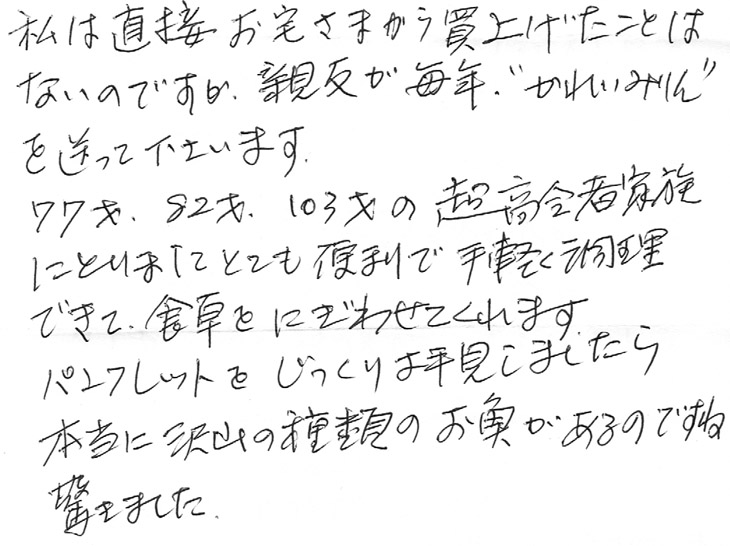 私は直接お宅さまから買上げたことは
ないのですが、親友が毎年、“かれいみりん”
を送って下さいます。
77才、82才、103才の超高令者家族
にとりましてとても便利で手軽く調理
できて、食卓をにぎわせてくれます。
パンフレットをじっくり拝見しましたら
本当に沢山の種類のお魚があるのですね
驚きました。